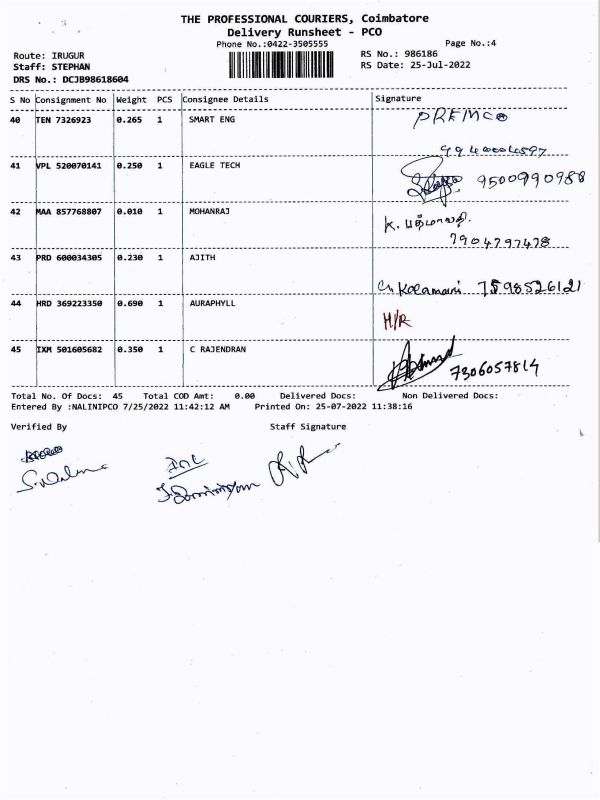 THE PROFESSIONAL COURIERS, Coimbatore
Delivery Runsheet - PCO
Phone No.:0422-3505555 Page No.:4
Route: IRUGUR RS No.: 986186
Staff: STEPHAN RS Date: 25-Jul-2022
DRS No.: DCJB98618604
S No Consignment No Weight PCS Consignee Details Signature
40 TEN 7326923 0.265 1 SMART ENG PREMCO
9940004597
41 VPL 520070141 0.250 1 EAGLE TECH 9500990988
42 MAA 857768807 0.010 1 MOHANRAJ K. பத்மாவதி.
7904797478
43 PRD 600034305 0.230 1 AJITH
Ch Kolamani 7598526121
44 HRD 369223350 0.690 1 AURAPHYLL H/R
45 IXM 501605682 0.350 1 C RAJENDRAN 7306057814
Total No. Of Docs: 45 Total COD Amt: 0.00 Delivered Docs: Non Delivered Docs:
Entered By :NALINIPCO 7/25/2022 11:42:12 AM Printed On: 25-07-2022 11:38:16
Verified By Staff Signature